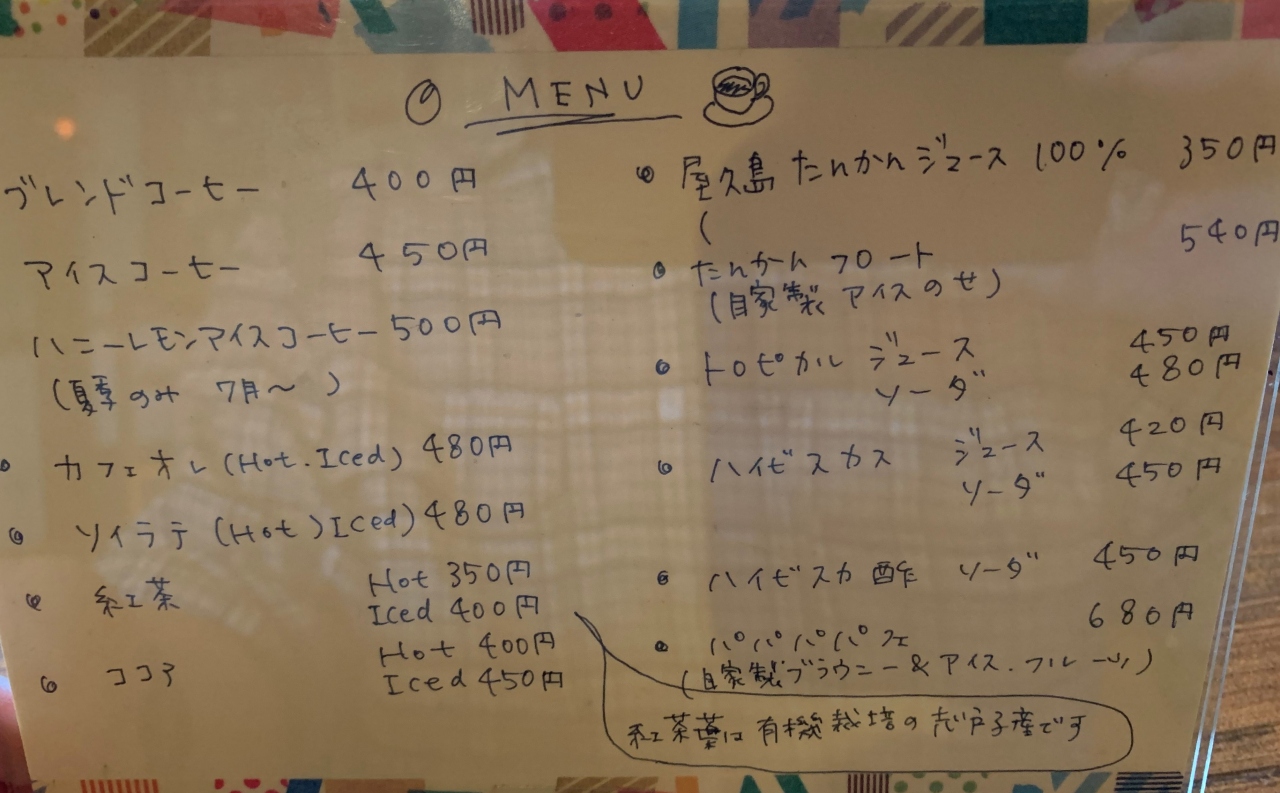 MENU
ブレンドコーヒー 400円
アイスコーヒー 450円
ハニーレモンアイスコーヒー 500円
(夏季のみ 7月〜 )
カフェオレ(Hot.Iced) 480円
ソイラテ(Hot)Iced) 480円
紅茶 Hot 350円
Iced 400円
ココア Hot 400円
Iced 450円
屋久島たんかんジュース 100% 350円
(
たんかんフロート 540円
(自家製アイスのせ)
トロピカル ジュース 450円
ソーダ 480円
ハイビスカス ジュース 420円
ソーダ 450円
ハイビスカ酢 ソーダ 450円
パパパパフェ 680円
(自家製ブラウニー&アイス.フルーツ)
紅茶葉は有機栽培の 産です